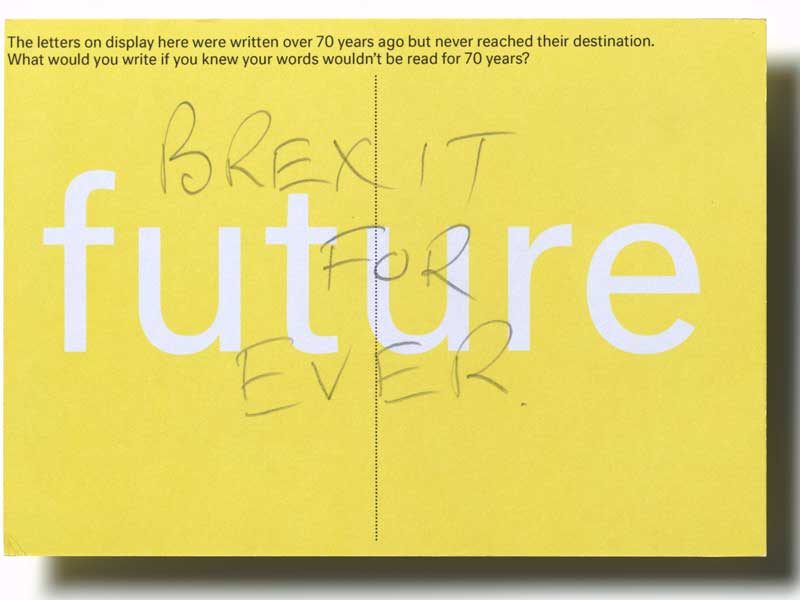 The letters on display here were written over 70 years ago but never reached their destination.
What would you write if you knew your words wouldn't be read for 70 years?
BREXIT
future
FOR
EVER.